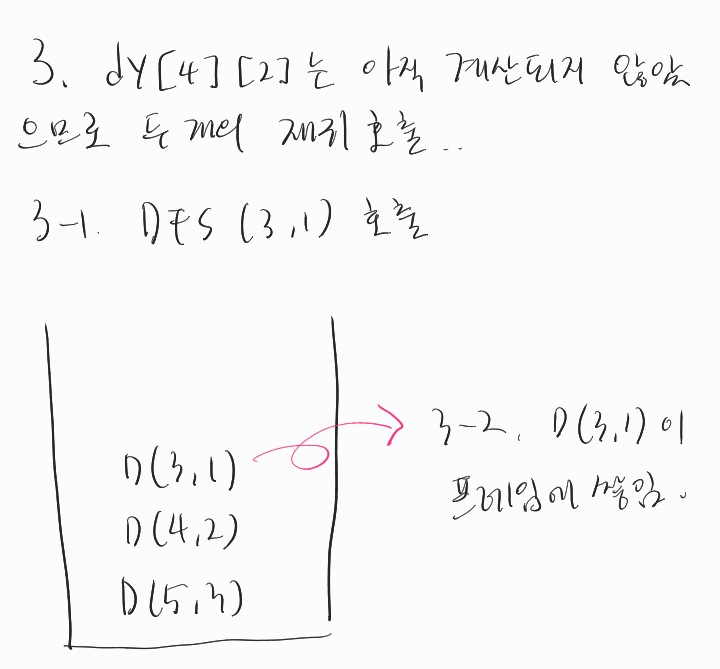 3. dy[4][2]는 아직 계산되지 않았
으므로 두 번째 재귀 호출..
3-1. DFS (3,1) 호출
D(3,1)
D(4,2)
D(5,3)
3-2. D(3,1)이
프레임에 쌓임.